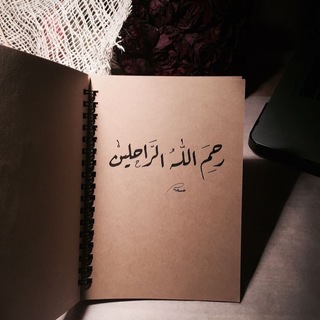 رحِمَ اللهُ الرَّاحلين